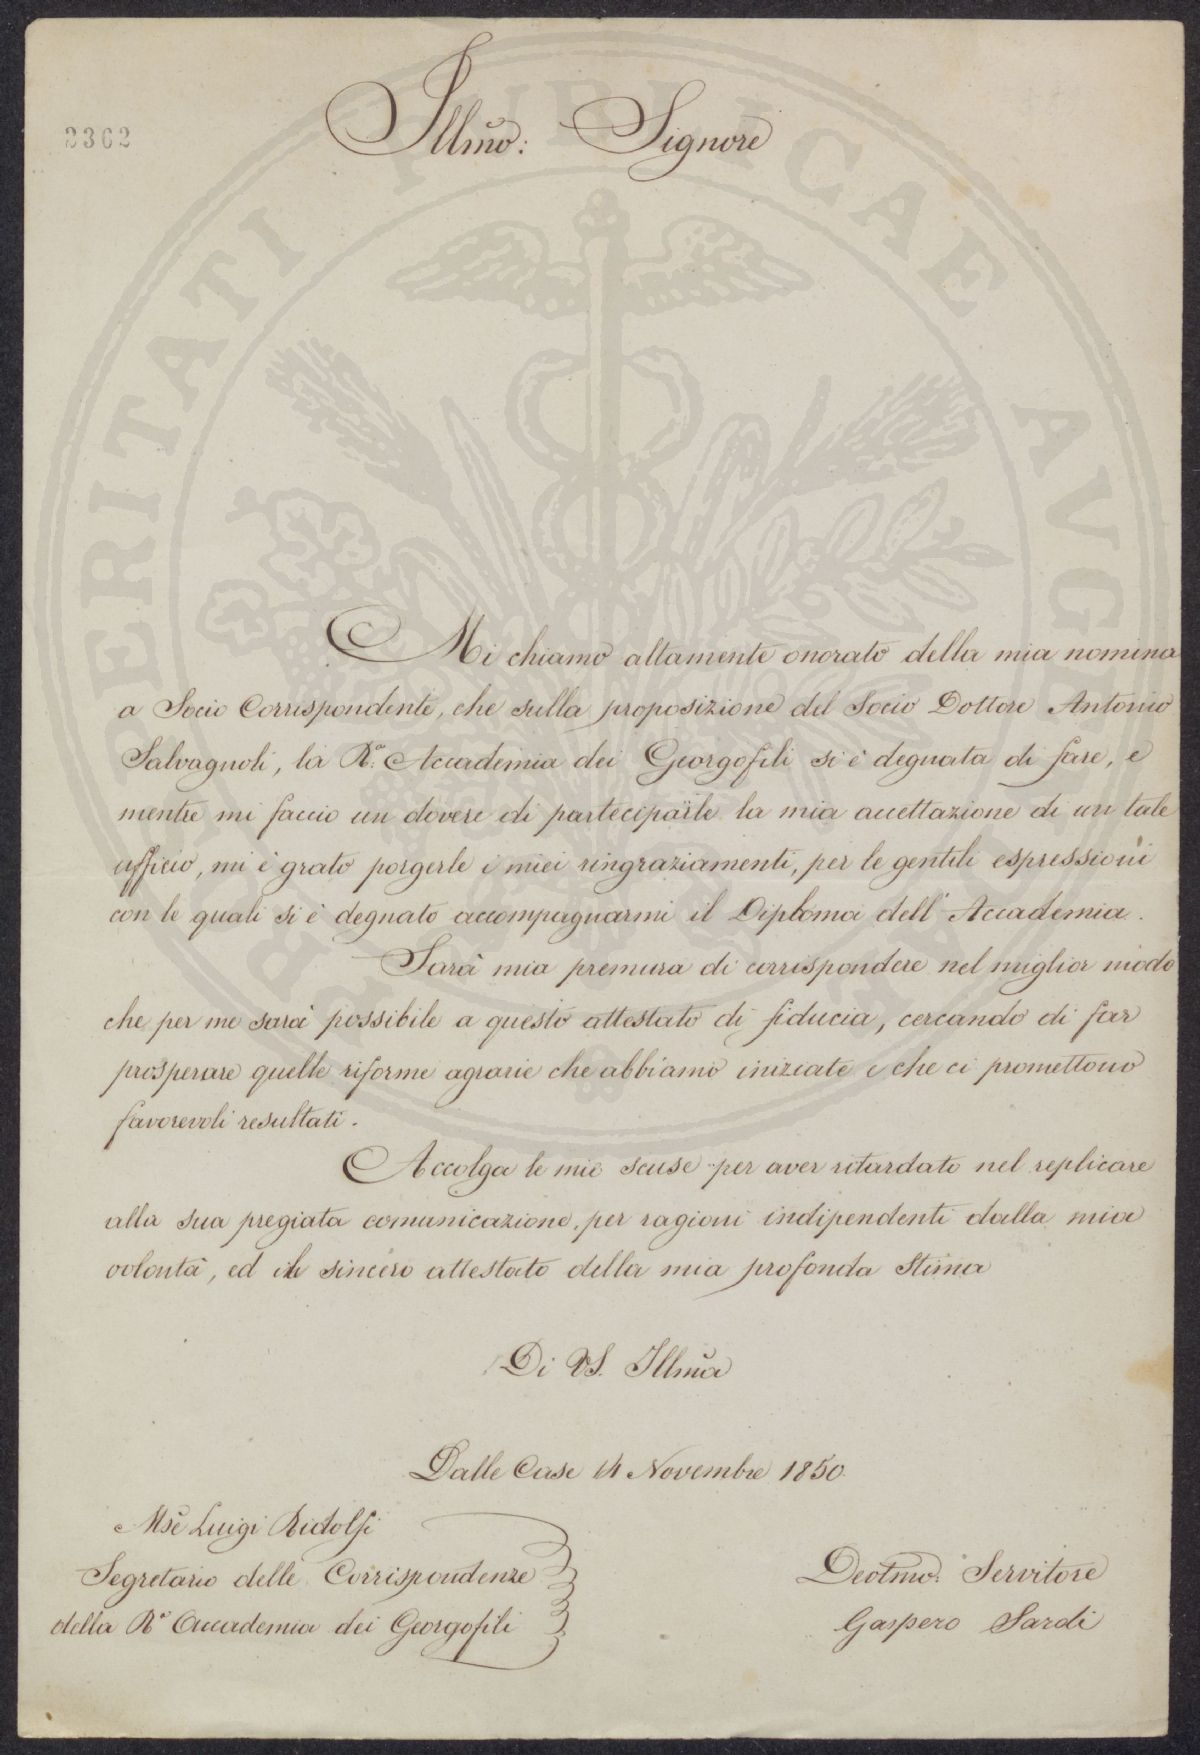 2362
Illmo: Signore
Mi chiamo altamente onorato della mia nomina
a Socio Corrispondente, che sulla proposizione del Socio Dottore Antonio
Salvagnoli, la Rª. Accademia dei Georgofili si è degnata di fare, e
mentre mi faccio un dovere di parteciparle la mia accettazione di un tale
ufficio, mi è grato porgerle i miei ringraziamenti, per le gentili espressioni
con le quali si è degnato accompagnarmi il Diploma dell' Accademia.
Sarà mia premura di corrispondere nel miglior modo
che per me sarà possibile a questo attestato di fiducia, cercando di far
prosperare quelle riforme agrarie che abbiamo iniziate e che ci promettono
favorevoli resultati.
Accolga le mie scuse per aver ritardato nel replicare
alla sua pregiata comunicazione, per ragioni indipendenti dalla mia
volontà, ed il sincero attestato della mia profonda Stima
Di VS. Illma
Dalle Case 14 Novembre 1850.
Mse Luigi Ridolfi
Segretario delle Corrispondenze
della Rª Accademia dei Georgofili
Devotmo: Servitore
Gaspero Sardi
PROSPERITATI PUBLICAE AVGENDAE